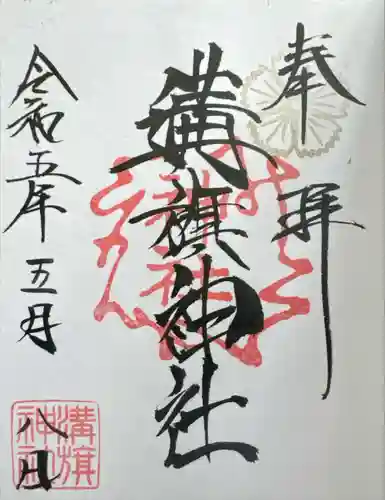 奉拝
溝旗神社
令和五年五月八日
溝旗
神社